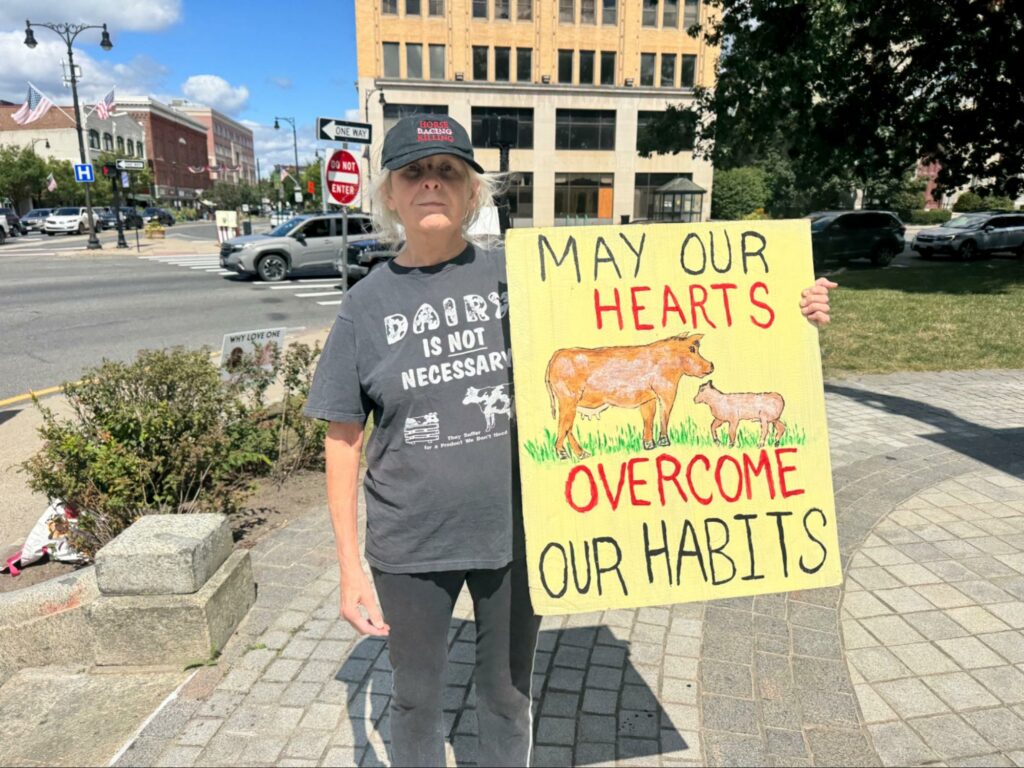 ONE WAY
DO NOT
ENTER
H
HORSE
RACING
KILLING
DAIRY
IS NOT
NECESSARY
They Suffer
for a Product We Don't Need
WHY LOVE ONE
MAY OUR
HEARTS
OVERCOME
OUR HABITS